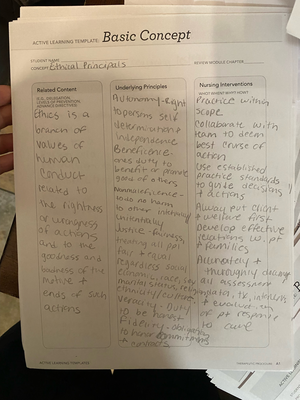 ACTIVE LEARNING TEMPLATE: Basic Concept
STUDENT NAME
CONCEPT Ethical Principals
REVIEW MODULE CHAPTER
Related Content
(E.G., DELEGATION,
LEVELS OF PREVENTION,
ADVANCE DIRECTIVES)
Ethics is a
branch of
values of
human
Conduct
related to
the rightness
or wrongness
of actions
and to the
goodness and
badness of the
motive +
ends of such
actions
Underlying Principles
Autonomy - Right
to persons self
determination &
independence
Beneficience-
ones duty to
benefit or promote
good of others
Nonmaleficience
to do no harm
to other internally
unintentally
Justice - fairness,
treating all ppl
fair + equal
regardless social
economic, race,
marital status, religion
ethnicity/culture
Veracity - Duty
to be honest
Fidelity - obligation
to honor commitments
+ contracts
Nursing Interventions
WHO? WHEN? WHY? HOW?
Practice within
scope
collaborate with
team to deem
best course of
action
Use established
practice standards
to guide decisions
+ actions
Always put client
+ welfare first
Develop effective
relations w. pt
+ families
Accurately +
thoroughly
all assessment
data, tx, interventions
+ evaluation
of pt response
to care
ACTIVE LEARNING TEMPLATES